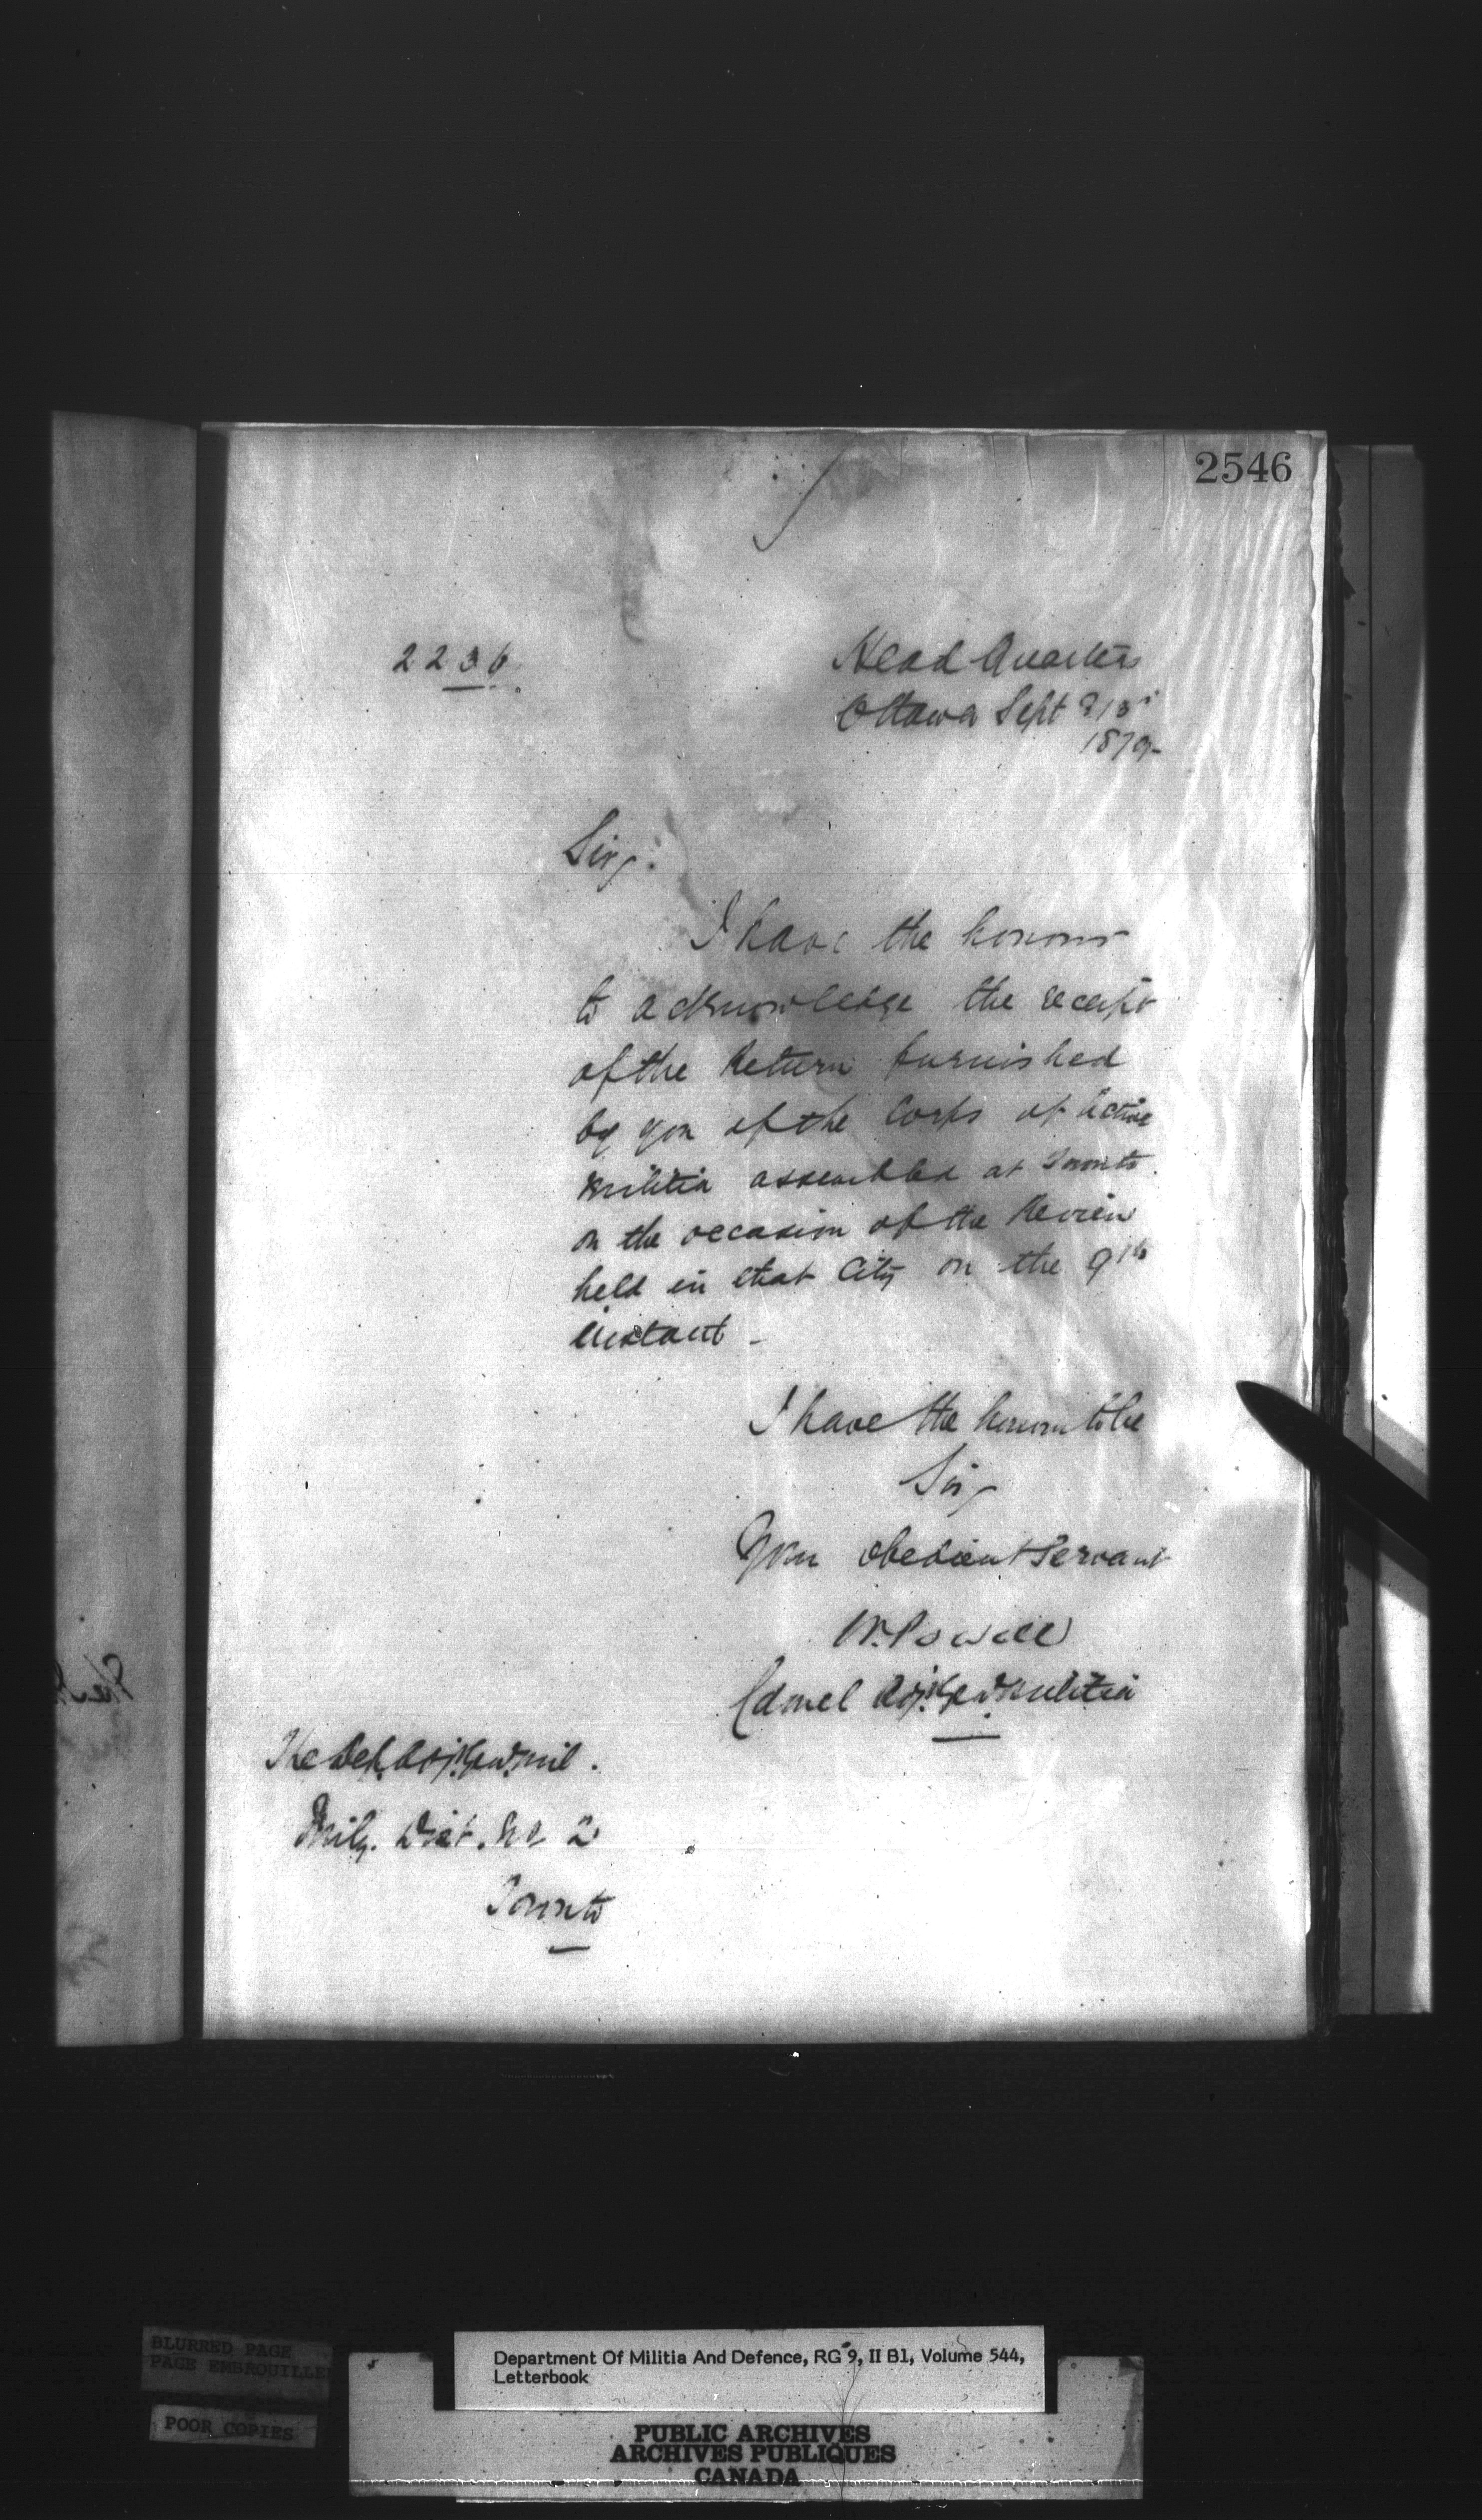 2546
2236
Head Quarters
Ottawa Sept
1879
Sir,
I have the honour
to acknowledge the receipt
of the Return furnished
by you of the Corps of Active
Militia assembled at Toronto
on the occasion of the Review
held in that City on the 9th
instant -
I have the honour to be
Sir,
Your obedient Servant
W. Powell
Colonel Adjt. Genl. Militia
The Dep. Adjt. Genl. Mil.
Mily. Dist. No 2
Toronto
BLURRED PAGE
PAGE EMBROUILLEE
POOR COPIES
Department Of Militia And Defence, RG 9, II B1, Volume 544,
Letterbook
PUBLIC ARCHIVES
ARCHIVES PUBLIQUES
CANADA